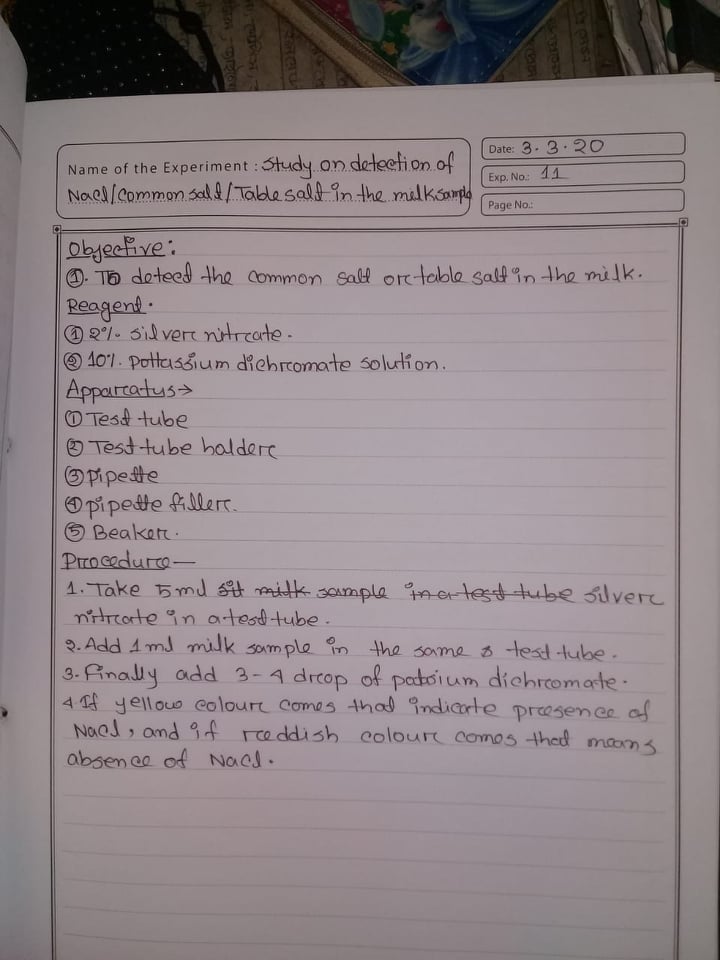 Name of the Experiment : Study on detection of
Nacl/common salt/Table salt in the milk sample
Date: 3.3.20
Exp. No.: 11
Page No.:
Objective:
①. To detect the common salt or table salt in the milk.
Reagent.
① 2%. silver nitrate.
② 10%. pottassium dichromate solution.
Apparatus→
① Test tube
② Test tube holder
③ pipette
④ pipette filler.
⑤ Beaker.
Procedure—
1. Take 5 ml milk sample in a test tube silver
nitrate in a test tube.
2. Add 1 ml milk sample in the same test tube.
3. Finally add 3-4 drop of patoium dichromate.
4 If yellow colour comes that indicate praesence of
Nacl, and if raeddish colour comes that means
absence of Nacl.